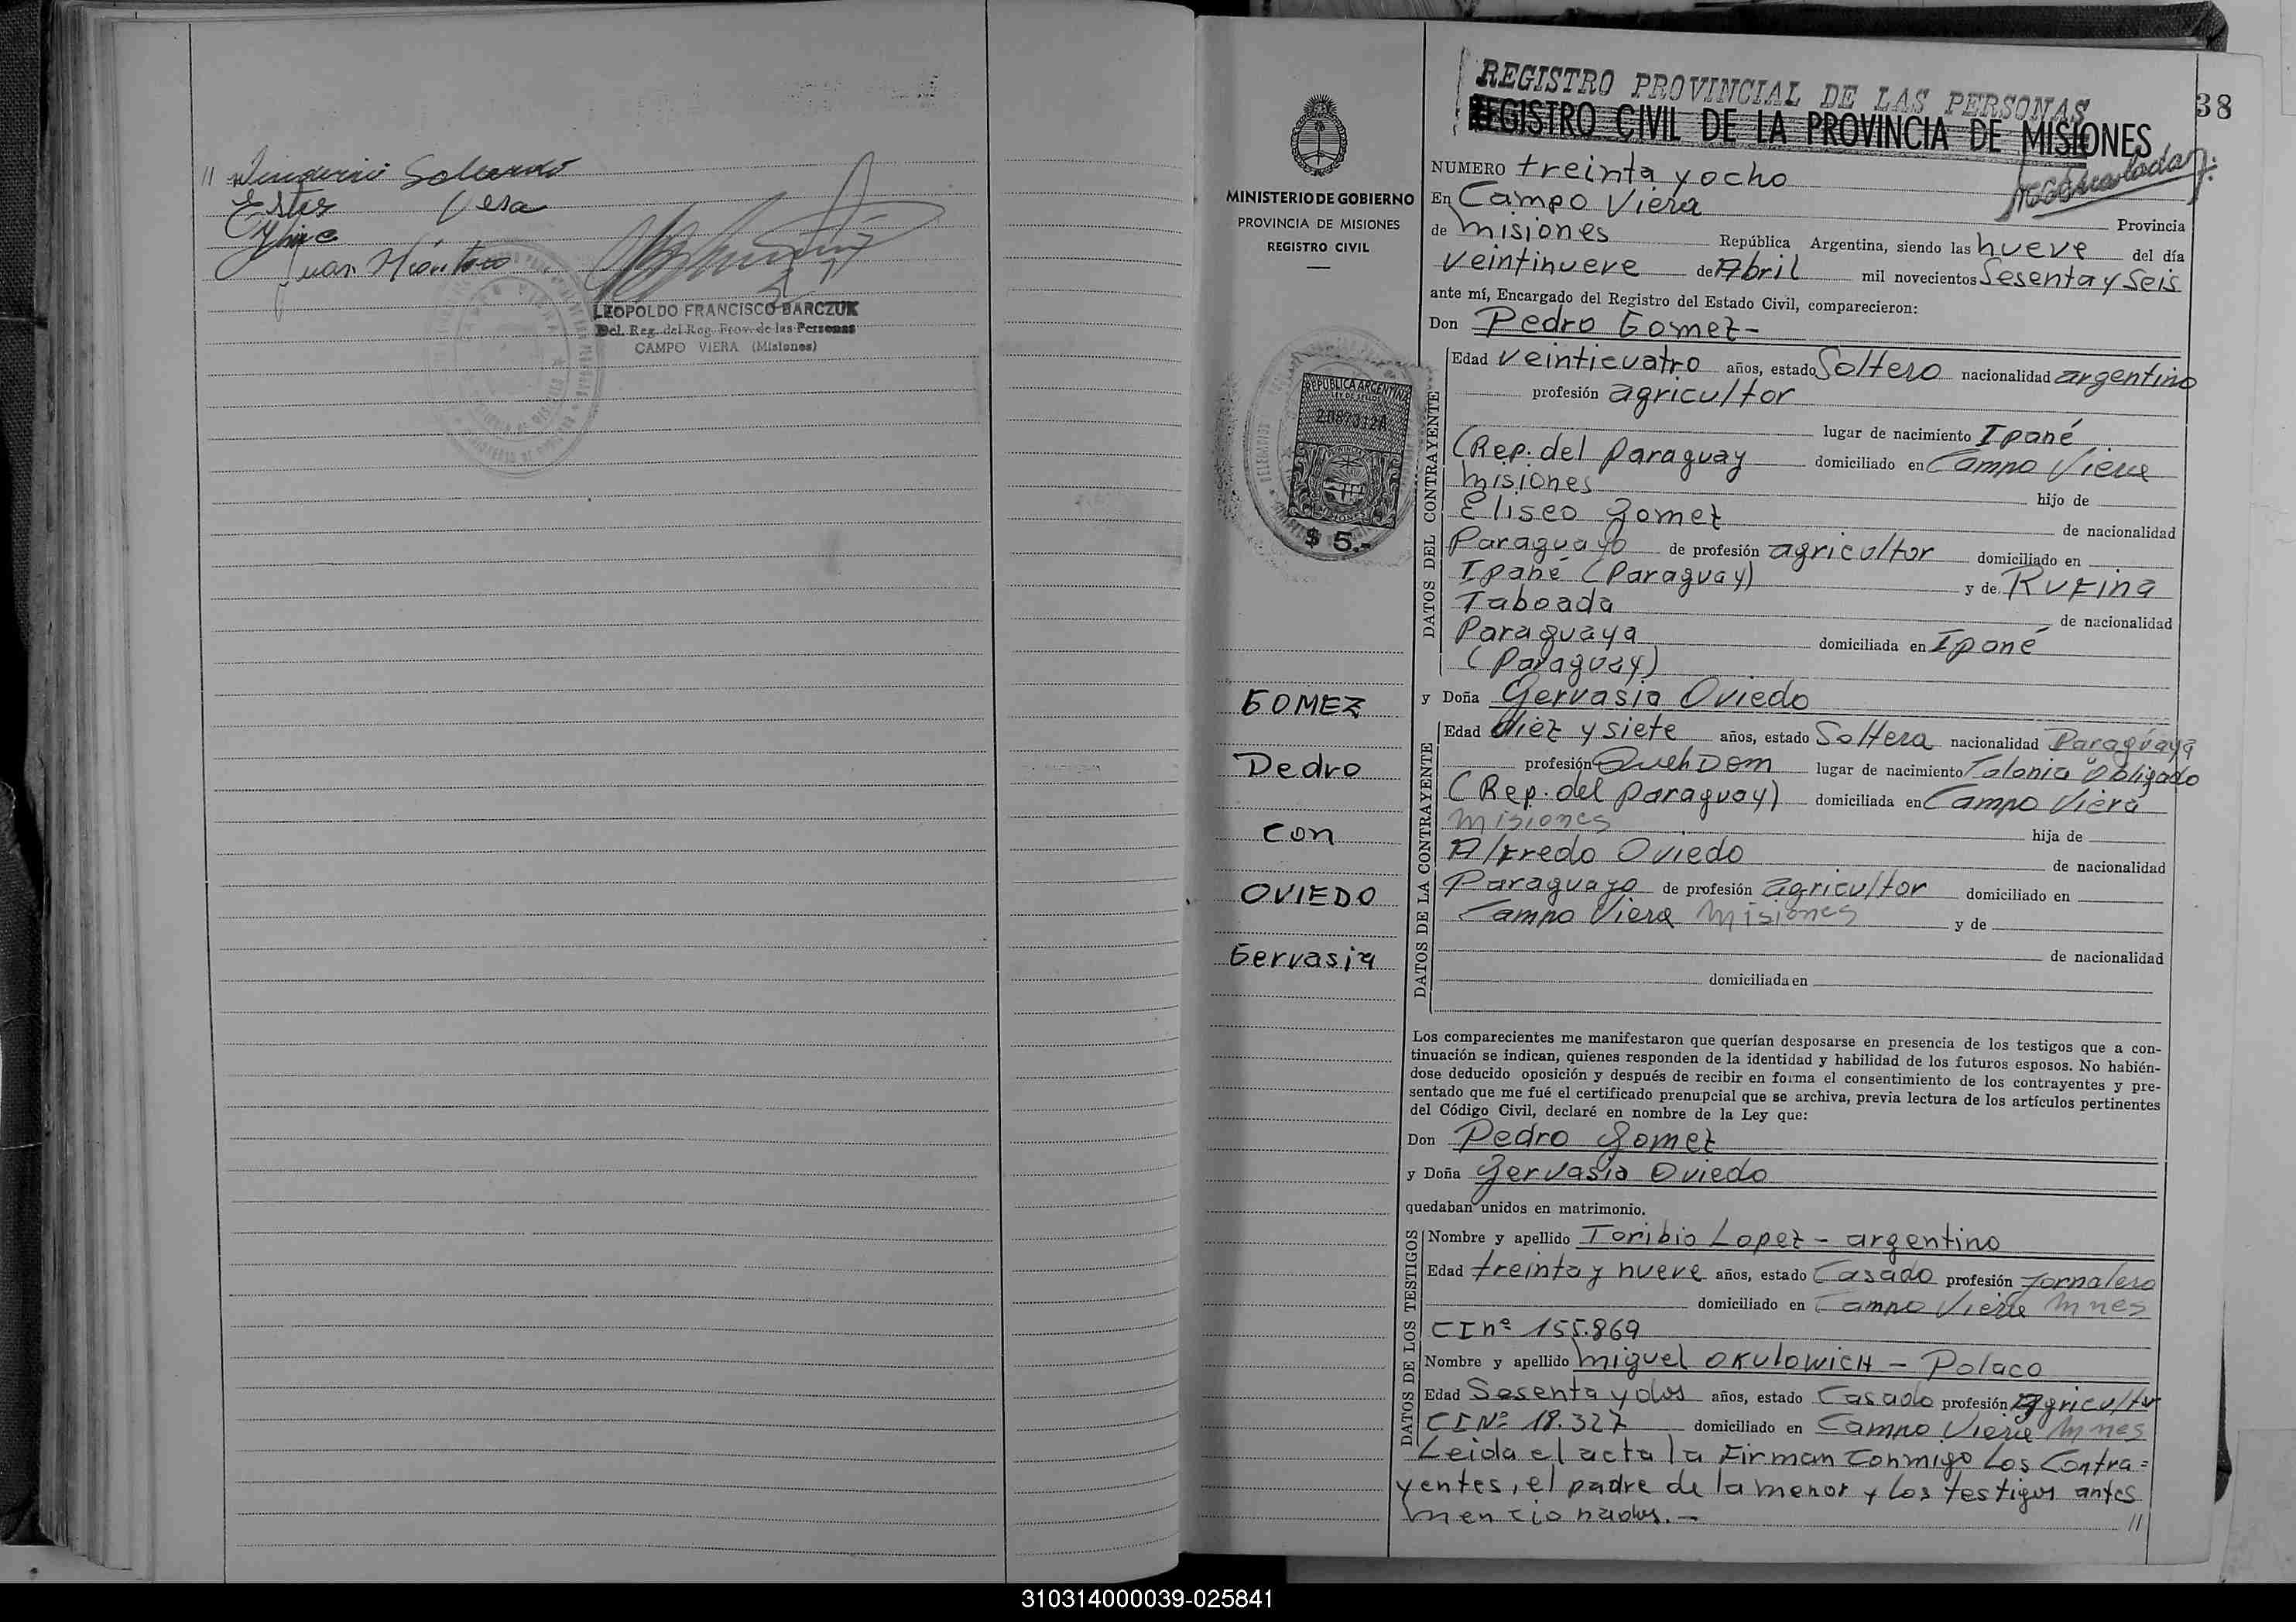 // Salcedo
Ester Vera
Juan
LEOPOLDO FRANCISCO BARCZUK
Del. Reg. del Reg. Prov. de las Personas
CAMPO VIERA (Misiones)
REGISTRO PROVINCIAL DE LAS PERSONAS
REGISTRO CIVIL DE LA PROVINCIA DE MISIONES
38
MINISTERIO DE GOBIERNO
PROVINCIA DE MISIONES
REGISTRO CIVIL
REPUBLICA ARGENTINA
LEY DE SELLOS
2087312A
MISIONES
$ 5.-
GOMEZ
Pedro
con
OVIEDO
Gervasia
NUMERO treinta y ocho
En Campo Viera Provincia
de Misiones República Argentina, siendo las nueve del día
veintinueve de Abril mil novecientos Sesenta y Seis
ante mí, Encargado del Registro del Estado Civil, comparecieron:
Don Pedro Gomez-
DATOS DEL CONTRAYENTE
Edad veinticuatro años, estado Soltero nacionalidad argentino
profesión agricultor
lugar de nacimiento Ipané
(Rep. del Paraguay domiciliado en Campo Viera
Misiones hijo de
Eliseo Gomez de nacionalidad
Paraguayo de profesión agricultor domiciliado en
Ipané (Paraguay) y de Rufina
Taboada de nacionalidad
Paraguaya domiciliada en Ipané
(Paraguay)
y Doña Gervasia Oviedo
DATOS DE LA CONTRAYENTE
Edad diez y siete años, estado Soltera nacionalidad Paraguaya
profesión QuehDom lugar de nacimiento Colonia Obligado
(Rep. del Paraguay) domiciliada en Campo Viera
Misiones hija de
Alfredo Oviedo de nacionalidad
Paraguayo de profesión agricultor domiciliado en
Campo Viera Misiones y de
de nacionalidad
domiciliada en
Los comparecientes me manifestaron que querían desposarse en presencia de los testigos que a con-
tinuación se indican, quienes responden de la identidad y habilidad de los futuros esposos. No habién-
dose deducido oposición y después de recibir en forma el consentimiento de los contrayentes y pre-
sentado que me fué el certificado prenupcial que se archiva, previa lectura de los artículos pertinentes
del Código Civil, declaré en nombre de la Ley que:
Don Pedro Gomez
y Doña Gervasia Oviedo
quedaban unidos en matrimonio.
DATOS DE LOS TESTIGOS
Nombre y apellido Toribio Lopez - argentino
Edad treinta y nueve años, estado Casado profesión Jornalero
domiciliado en Campo Viera Mnes
CI nº 155.869
Nombre y apellido Miguel OKULOWICH - Polaco
Edad Sesenta y dos años, estado Casado profesión Agricultor
CI Nº 18.327 domiciliado en Campo Viera Mnes
Leida el acta la Firman Conmigo Los Contra=
yentes, el padre de la menor y los testigos antes
mencionados.- //
310314000039-025841